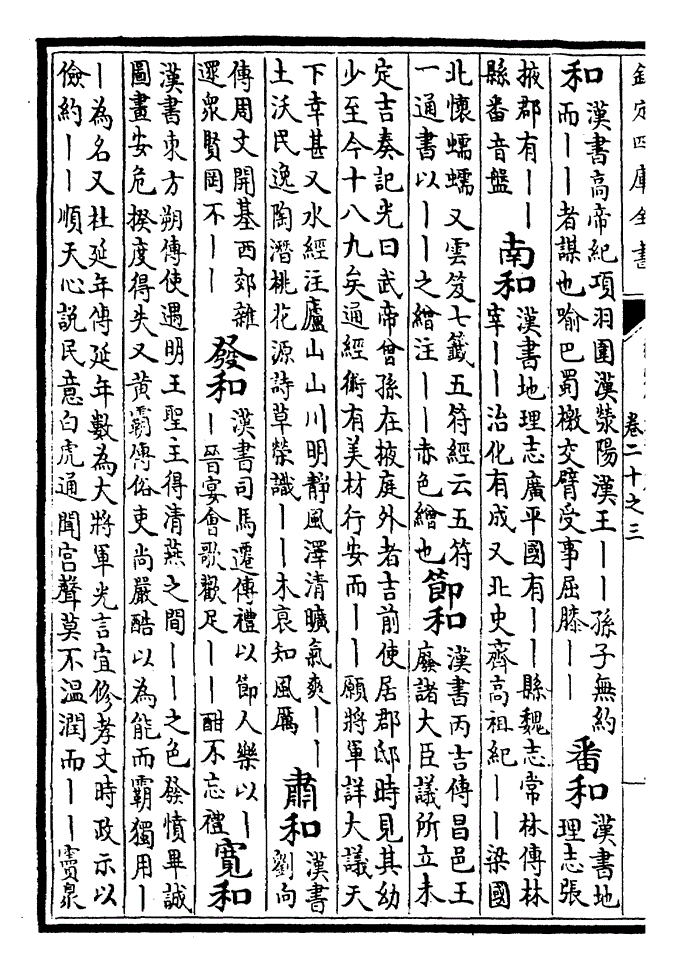 欽定四庫全書
卷二十之三
和 漢書高帝紀項羽圍漢滎陽漢王丨丨孫子無約
而丨丨者謀也喻巴蜀檄交臂受事屈膝丨丨 番和 漢書地
理志張
掖郡有丨丨
縣番音盤 南和 漢書地理志廣平國有丨丨縣魏志常林傳林
宰丨丨治化有成又北史齊高祖紀丨丨梁國
北懷蠕蠕又雲笈七籤五符經云五符
一通書以丨丨之繒注丨丨赤色繒也 節和 漢書丙吉傳昌邑王
廢諸大臣議所立未
定吉奏記光曰武帝曾孫在掖庭外者吉前使居郡邸時見其幼
少至今十八九矣通經術有美材行安而丨丨願將軍詳大議天
下幸甚又水經注廬山山川明靜風澤清曠氣爽丨丨
土沃民逸陶潛桃花源詩草榮識丨丨木衰知風厲 肅和 漢書
劉向
傳周文開基西郊雜
還衆賢罔不丨丨 發和 漢書司馬遷傳禮以節人樂以丨
丨晉宴會歌歡足丨丨酣不忘禮 寛和
漢書東方朔傳使遇明王聖主得清燕之間丨丨之色發憤畢誠
圖畫安危揆度得失又黃霸傳俗吏尚嚴酷以為能而霸獨用丨
丨為名又杜延年傳延年數為大將軍光言宜修孝文時政示以
儉約丨丨順天心説民意白虎通聞宫聲莫不溫潤而丨丨竇泉